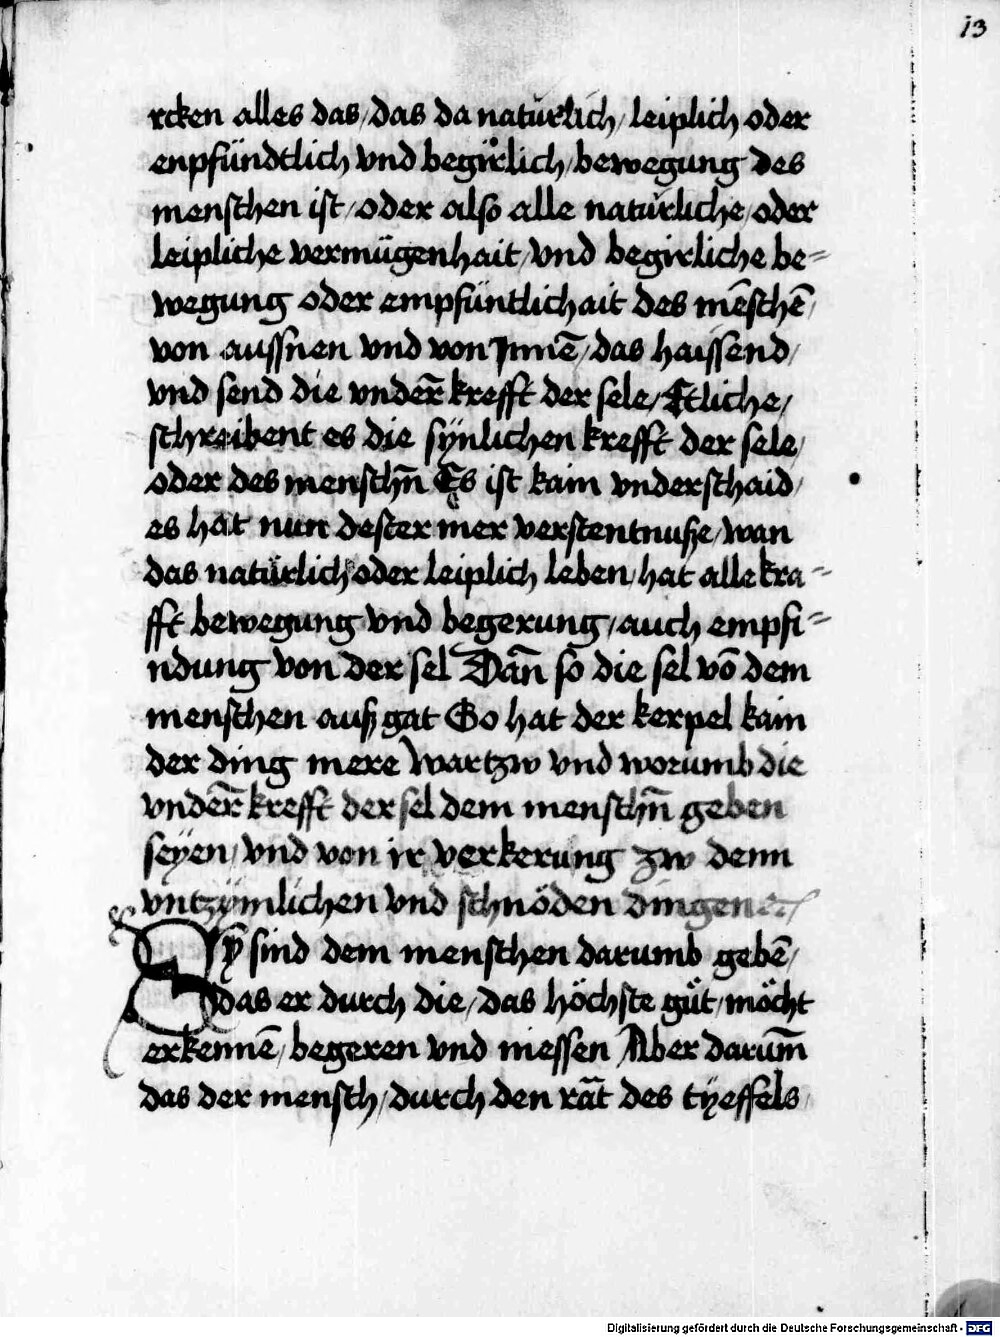 13
rcken alles das / das da natürlich / leiplich oder
enpfündtlich vnd begirlich / bewegung des
menschen ist / oder also alle natürliche / oder
leipliche vermügenhait / vnd begirliche be=
wegung oder empfüntlichait des mēschē /
von aussnen vnd von Jnnē / das haissend /
vnd send die vnder̄ krefft der sele / Etliche /
schreibent es die sÿnlichen krefft der sele /
oder des menschn̄ Es ist kain vnderschaid /
es hat nun dester mer verstentnuße / wan
das natürlich oder leiplich leben / hat alle kra=
fft bewegung vnd begerung / auch empfi=
ndung von der sel Dan̄ so die sel vō dem
menschen auß gat So hat der kerpel kain
der ding mere Wartzw vnd worumb die
vnder̄ krefft der sel dem menschn̄ geben
seÿen / vnd von ir verkerung zw denn
vntzÿmlichen vnd schnöden dingen etc
Sÿ sind dem menschen darumb gebē /
das er durch die / das höchste gůt / möcht
erkennē / begeren vnd niessen Aber darum̄
das der mensch / durch den rāt des tÿeffels /
Digitalisierung gefördert durch die Deutsche Forschungsgemeinschaft - DFG